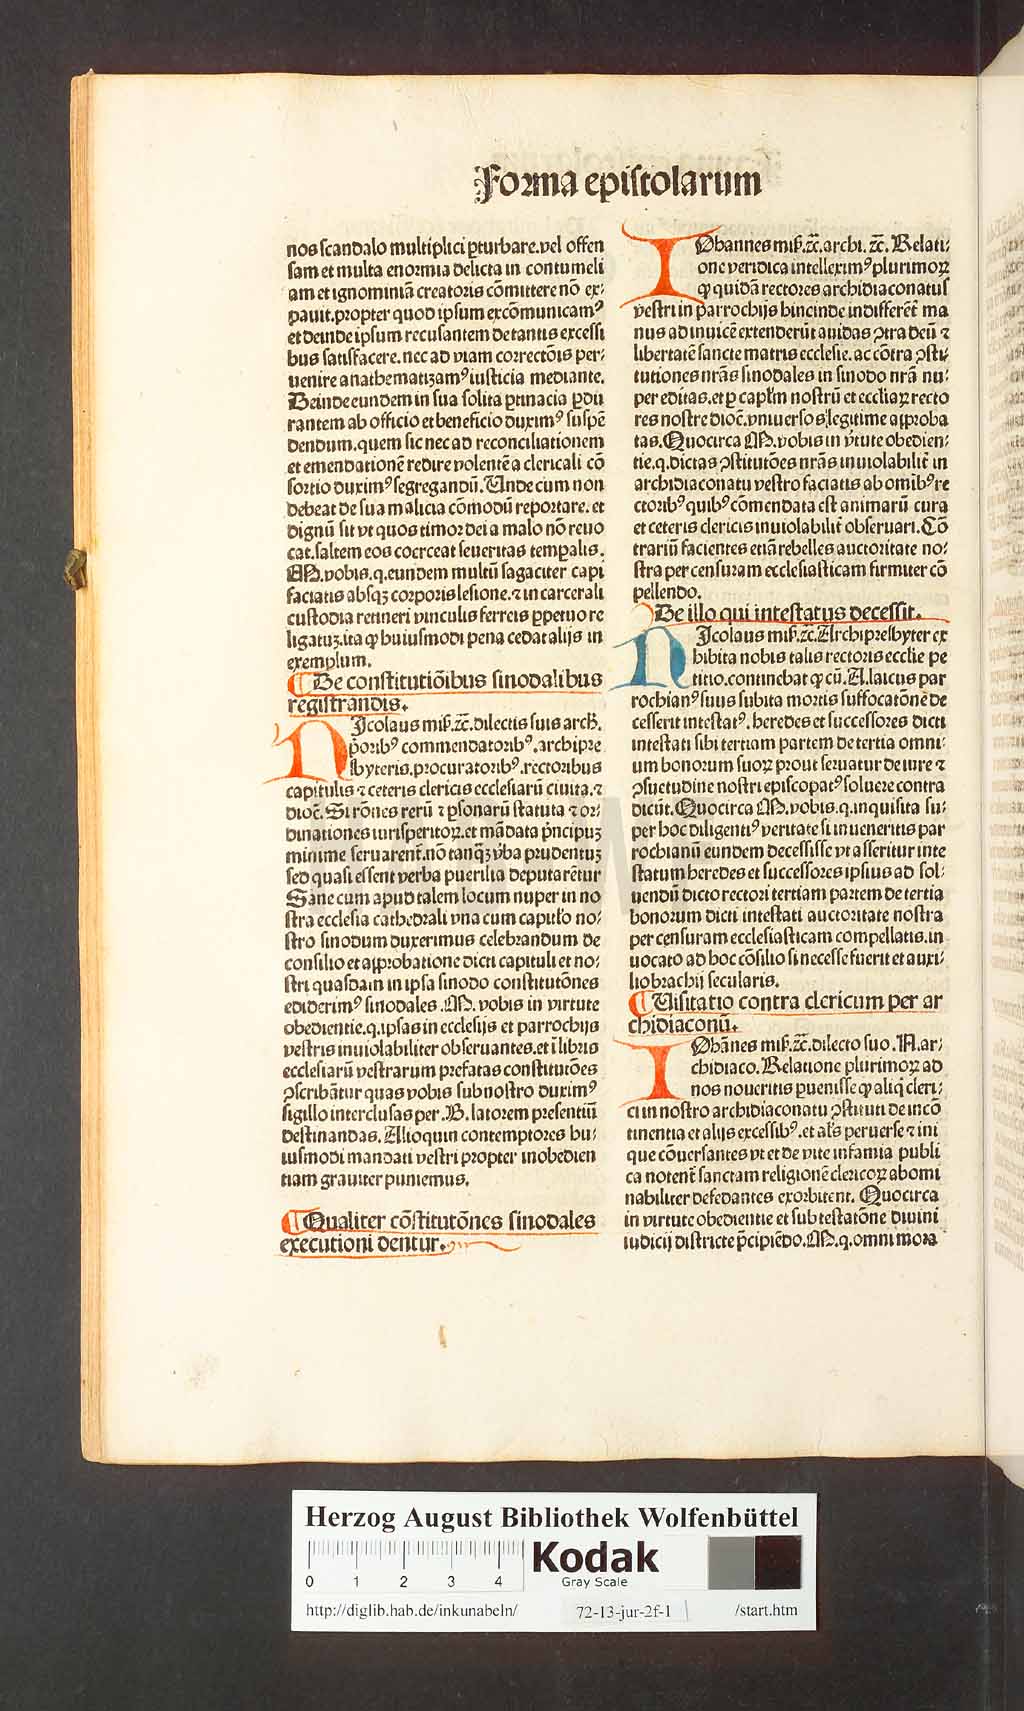 Forma epistolarum
nos scandalo multiplici ꝑturbare. vel offen
sam et multa enormia delicta in contumeli
am et ignominiā creatoris cōmittere nō ex⸗
pauit. propter quod ipsum excōmunicamꝰ
et deinde ipsum recusantem de tantis excessi
bus satisfacere. nec ad viam correctōis per⸗
uenire anathematizamꝰ iusticia mediante.
Deinde eundem in sua solita ꝑtinacia ꝑdu
rantem ab officio et beneficio duximꝰ suspē
dendum. quem sic nec ad reconciliationem
et emendationē redire volentē a clericali cō
sortio duximꝰ segregandū. Unde cum non
debeat de sua malicia cōmodū reportare. et
dignū sit vt quos timor dei a malo nō reuo
cat. saltem eos coerceat seueritas temꝑalis.
M. vobis. q. eundem multū sagaciter capi
faciatis absqꝫ corporis lesione. ⁊ in carcerali
custodia retineri vinculis ferreis ꝑpetuo re
ligatuꝫ. ita ꝙ huiusmodi pena cedat alijs in
exemplum.
¶ De constitutiōibus sinodalibus
registrandis.
NIcolaus mis. ꝛc̄. dilectis suis arch.
p̄oribꝰ commendatoribꝰ. archipre
sbyteris. procuratoribꝰ. rectoribus
capitulis ⁊ ceteris clericis ecclesiarū ciuita. ⁊
dioc̄. Si rōnes rerū ⁊ ꝑsonarū statuta ⁊ or⸗
dinationes iurisperitoꝝ. et mādata p̄ncipuꝫ
minime seruarent̄. nō tanqꝫ v̄ba prudentuꝫ
sed quasi essent verba puerilia deputarētur
Sane cum apud talem locum nuper in no
stra ecclesia cathedrali vna cum capitl̄o no⸗
stro sinodum duxerimus celebrandum de
consilio et approbatione dicti capituli et no⸗
stri quasdam in ipsa sinodo constitutōnes
ediderimꝰ sinodales. M. vobis in virtute
obedientie. q. ipsas in ecclesijs et parrochijs
vestris inuiolabiliter obseruantes. et ī libris
ecclesiarū vestrarum prefatas constitutōes
ꝯscribātur quas vobis sub nostro duximꝰ
sigillo interclusas per. B. latorem presentiū
destinandas. Alioquin contemptores hu⸗
iusmodi mandati vestri propter inobedien
tiam grauiter puniemus.
¶ Qualiter cōstitutōnes sinodales
executioni dentur.
IOhannes mis. ꝛc̄. archi. ꝛc̄. Relati⸗
one veridica intelleximꝰ plurimoꝝ
ꝙ quidā rectores archidiaconatus
vestri in parrochijs hincinde indifferēt̄ ma
nus ad inuicē extenderūt auidas ꝯtra deū ⁊
libertatē sancte matris ecclesie. ac cōtra ꝯsti⸗
tutiones nrās sinodales in sinodo nrā nu⸗
per editas. et ꝑ capl̄m nostrū et eccliaꝝ recto
res nostre dioc̄. vniuersos legitime approba
tas. Quocirca M. vobis in v̄tute obedien⸗
tie. q. dictas ꝯstitutōes nrās inuiolabilit̄ in
archidiaconatu vestro faciatis ab omībꝰ re
ctoribꝰ quibꝰ cōmendata est animarū cura
et ceteris clericis inuiolabilit̄ obseruari. Cō
trariū facientes etiā rebelles auctoritate no⸗
stra per censuram ecclesiasticam firmiter cō
pellendo.
De illo qui intestatus decessit.
NIcolaus mis. ꝛc̄. Archipresbyter ex
hibita nobis talis rectoris ecclie pe
titio. continebat ꝙ cū. A. laicus par
rochianꝰ suus subita mortis suffocatōne de
cesserit intestatꝰ. heredes et successores dicti
intestati sibi tertiam partem de tertia omni⸗
um bonorum suoꝝ prout seruatur de iure ⁊
ꝯsuetudine nostri episcopatꝰ soluere contra
dicūt. Quocirca M. vobis. q. inquisita su⸗
per hoc diligentiꝰ veritate si inueneritis par
rochianū eundem decessisse vt asseritur inte
statum heredes et successores ipsius ad sol⸗
uendū dicto rectori tertiam partem de tertia
bonorum dicti intestati auctoritate nostra
per censuram ecclesiasticam compellatis. in
uocato ad hoc cōsilio si necesse fuerit et auxi⸗
lio brachij secularis.
¶ Uisitatio contra clericum per ar
chidiaconū.
IOhānes mis. ꝛc̄. dilecto suo. N. ar⸗
chidiaco. Relatione plurimoꝝ ad
nos noueritis ꝑuenisse ꝙ aliq̄ cleri⸗
ci in nostro archidiaconatu ꝯstituti de incō
tinentia et alijs excessibꝰ. et al̄s peruerse ⁊ ini
que cōuersantes vt et de vite infamia publi
ca notent̄ sanctam religionē clericoꝝ abomi
nabiliter defedantes exorbitent. Quocirca
in virtute obedientie et sub testatōne diuini
iudicij districte p̄cipiēdo. M. q. omni mora
Herzog August Bibliothek Wolfenbüttel
0 1 2 3 4
Kodak
Gray Scale
http://diglib.hab.de/inkunabeln/ 72-13-jur-2f-1 /start.htm